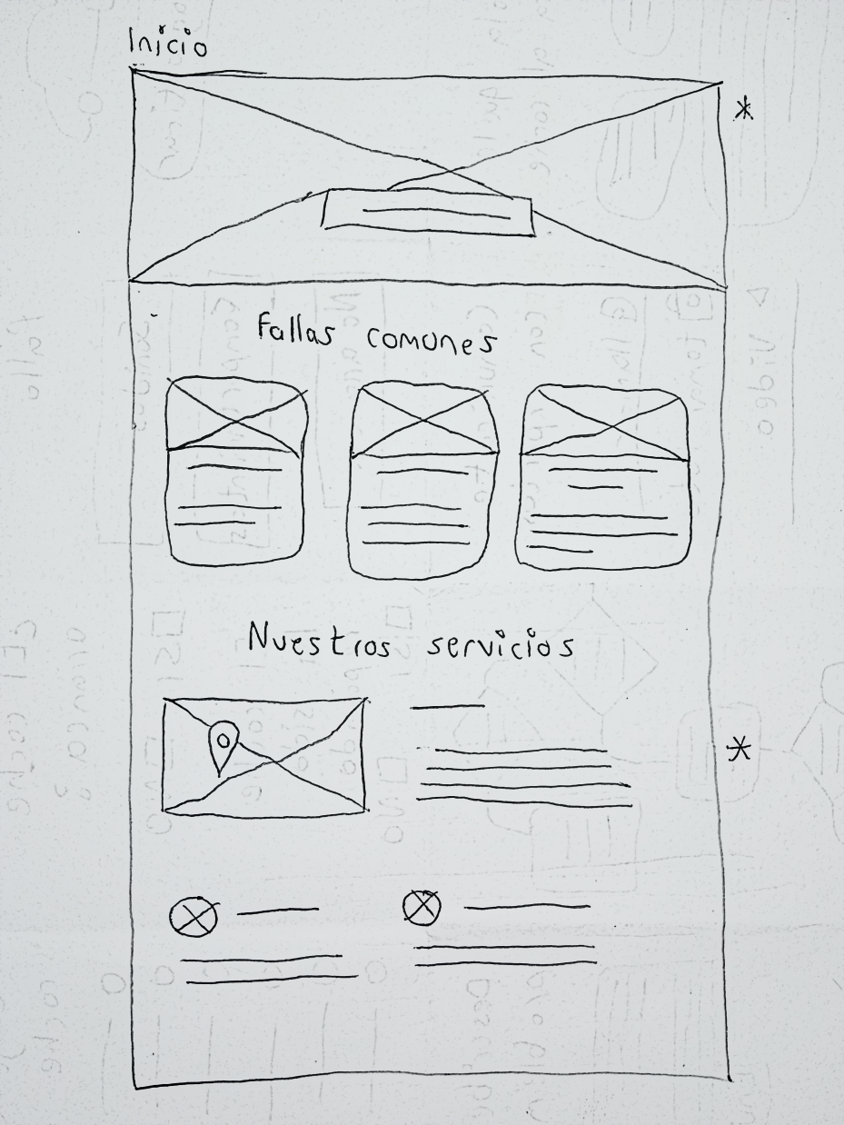 Inicio
*
Fallas comunes
Nuestros servicios
*